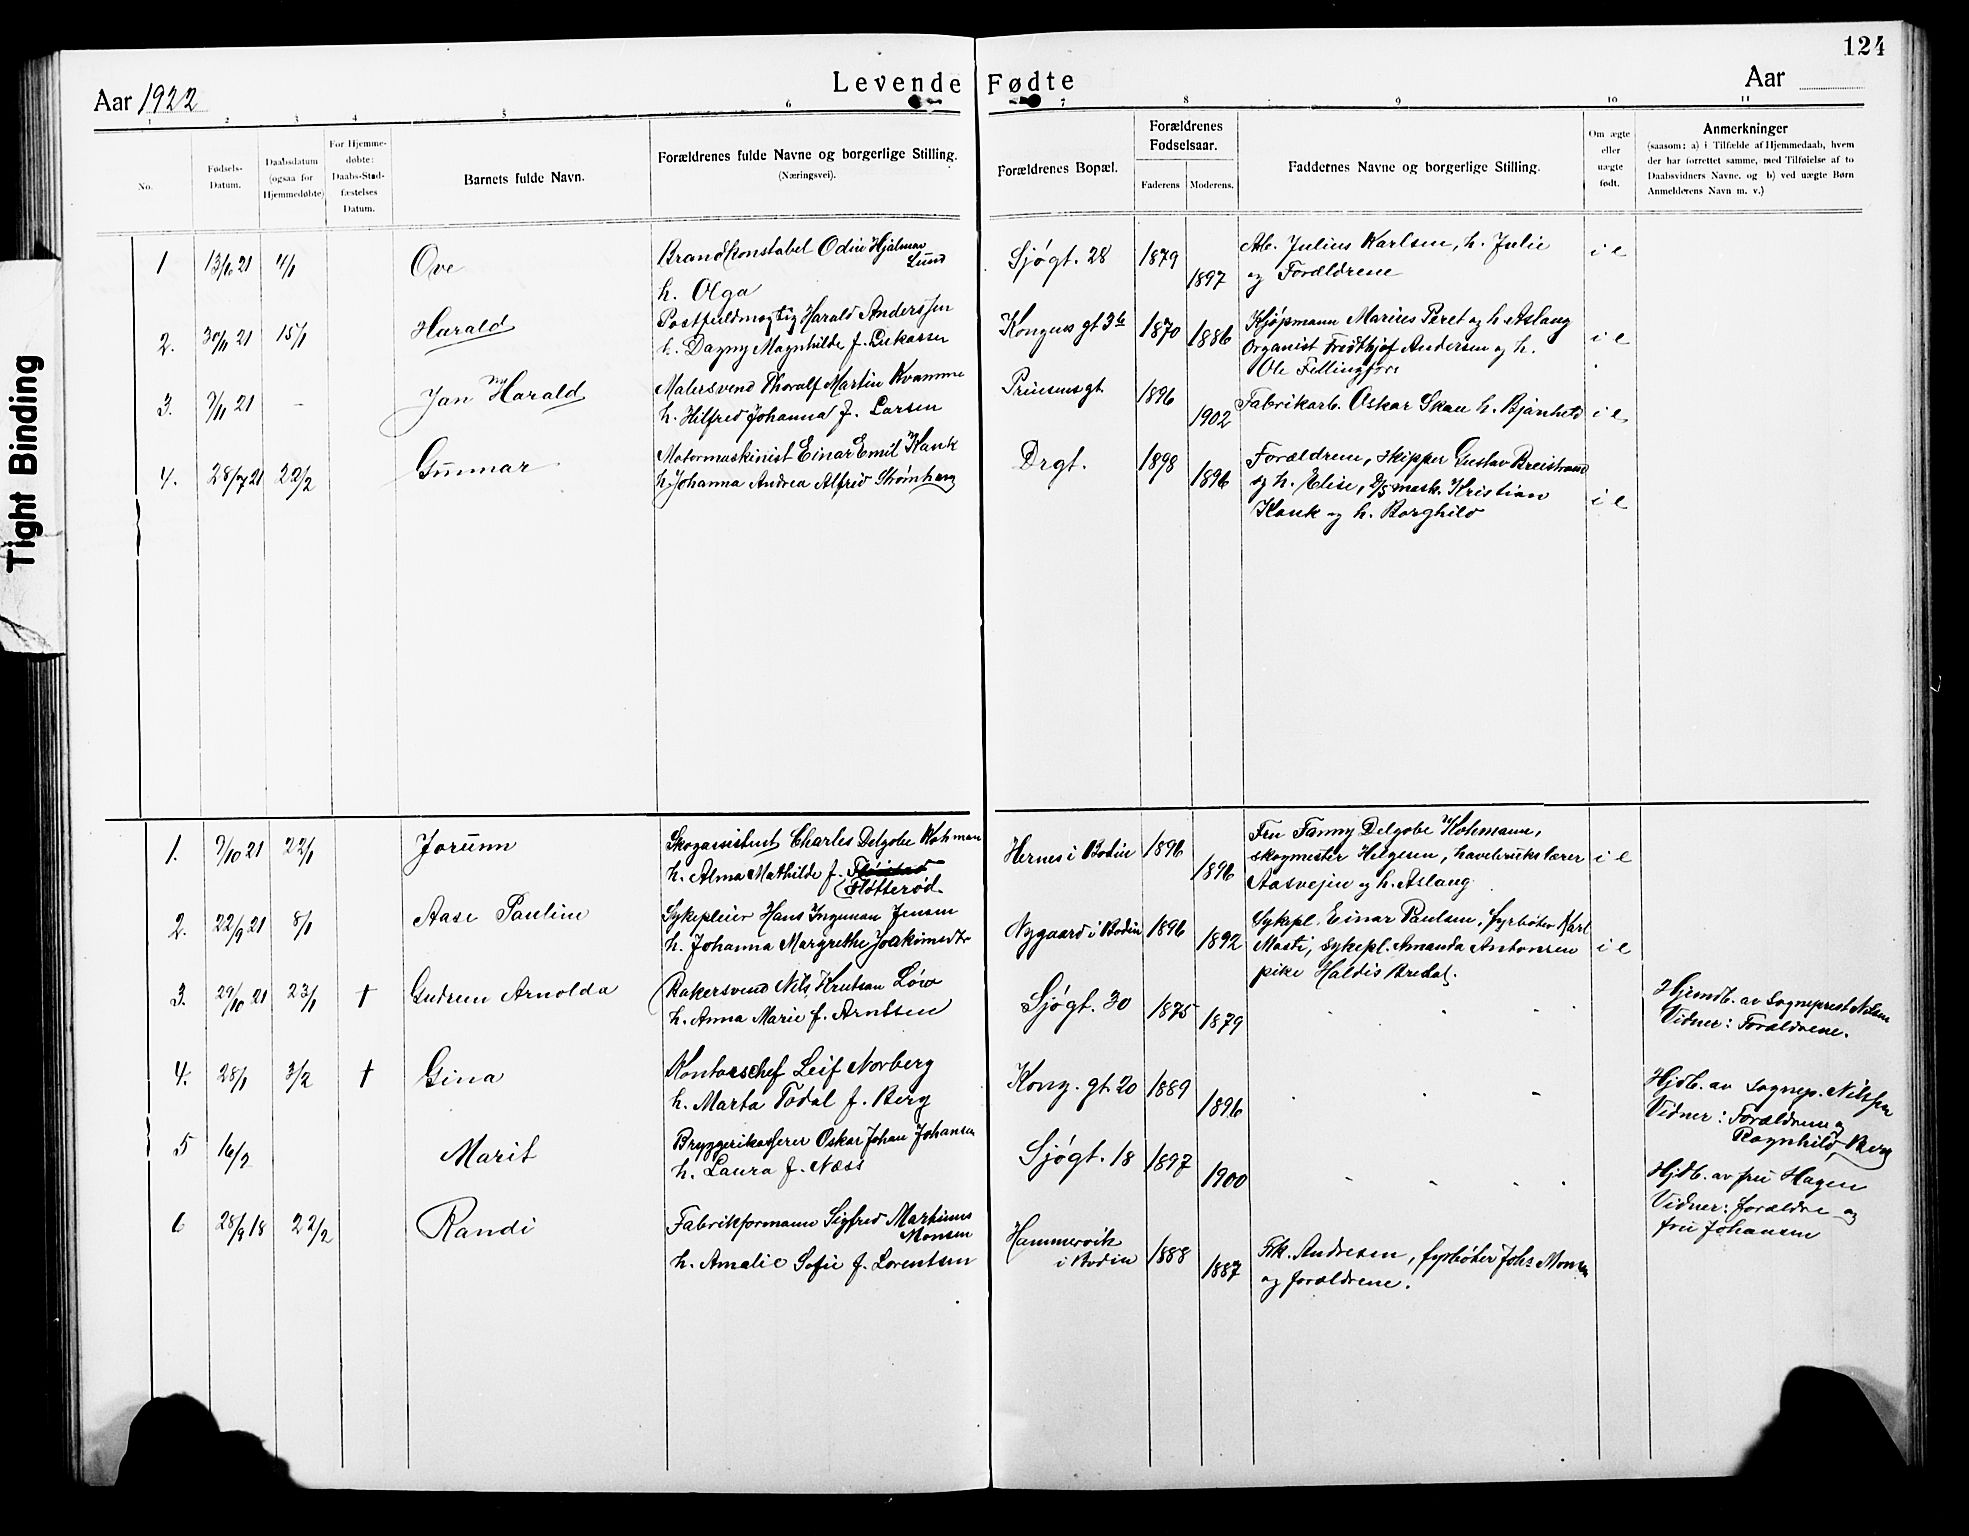 124
Levende Fødte
Aar 1922
Aar
1 2 3 4 5 6 7 8 9 10 11
No.
Fødsels-
Datum.
Daabsdatum
(ogsaa for
Hjemmedøbte)
For Hjemme-
døbte:
Daabs-Stad-
fæstelses
Datum.
Barnets fulde Navn.
Forældrenes fulde Navne og borgerlige Stilling.
(Næringsvei).
Forældrenes Bopæl.
Forældrenes
Fødselsaar.
Faderens Moderens.
Faddernes Navne og borgerlige Stilling.
Om ægte
eller
uægte
født.
Anmerkninger
(saasom: a) i Tilfælde af Hjemmedaab, hvem
der har forrettet samme, med Tilføielse af to
Daabsvidners Navne, og b) ved uægte Børn
Anmelderens Navn m. v.)
Tight Binding
1 13/10 21 4/1 Ove
Brandkonstabel Odin Hjalmar
Lund
h. Olga
Sjøgt. 28 1879 1897
Arb. Julius Karlsen, h. Julie
og Forældrene
i e
2. 30/11 21 15/1 Harald
Postfuldmægtig Harald Anderssen
h. Dagny Magnhilde f. Lukassen
Kongens gt 36 1870 1886
Kjøpmann Marius Peret og h. Aslaug
Organist Fredthjof Andersen og h.
Ole
i e
3. 9/11 21 - Jan Harald
Malersvend Thoralf Martin Kvamme
h. Hilfred Johanna f. Larsen
Prinsensgt 1896 1902
Fabrikarb. Oskar Skau h. Bjarnhild
i e
4. 28/7 21 22/2 Gunnar
Motormaskinist Einar Emil Hauk
h. Johanna Andrea Alfrid Strømhaug
Drgt. 1898 1896
Forældrene, skipper Gustav Breistrand
og h. Elise, D/S mask. Kristian
Hauk og h. Borghild
i e
1. 9/10 21 22/1 Jorunn
Skogassistent Charles Delgobe Kohman
h. Alma Mathilde f.
Fløtterød.
Hernes i Bodin 1896 1896
Fru Fanny Delgobe Kohmann,
skogmester Helgesen, havebrukslærer
Aasvejen og h. Aslaug
i e
2. 22/9 21 8/1 Aase Pauline
Sykepleier Hans Ingeman Jensen
h. Johanna Margrethe Joakimsdtr
Nygaard i Bodin 1896 1892
Sykepl. Einar Paulsen, fyrbøter Karl
Mosti, sykepl. Amanda Antonsen
pike Haldis Bredal.
i e
3. 29/10 21 23/1 † Gudrun Arnolda
Bakersvend Nils Knutsen Löw
h. Anna Marie f. Arntsen
Sjøgt. 30 1875 1879
Hjemdb. av Sogneprest Nilssen
Vidner: Forældrene.
4. 28/1 3/2 † Gina
Kontorschef Leif Norberg
h. Marta Todal f. Berg
Kong. gt. 20 1889 1896
Hjdb. av Sognepr. Nilssen
Vidner: Forældrene og
Ragnhild Berg
5 16/2 Marit
Bryggerikasserer Oskar Johan Johansen
h. Laura f. Næss
Sjøgt. 18 1897 1900
Hjdb. av fru Hagen
Vidner: forældre og
fru Johansen
6 28/9 18 22/2 Randi
Fabrikformann Sigfred Martinus
Monsen
h. Amalie Sofie f. Lorentsen
Hammervik
i Bodin 1888 1887
Frk. Andresen, fyrbøter Johs Monsen
og forældrene.